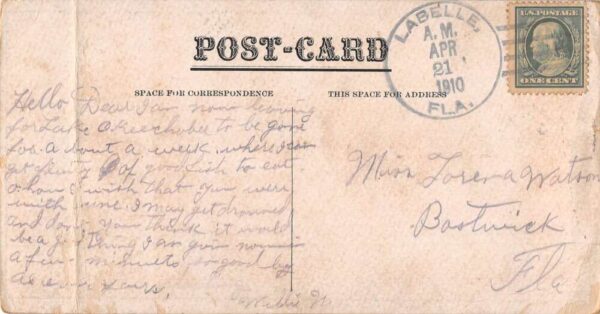 POST-CARD
LABELLE,
A.M.
APR
21
1910
FLA.
U.S. POSTAGE
ONE CENT
SPACE FOR CORRESPONDENCE
THIS SPACE FOR ADDRESS
Hello Dear I am now leaving
for Lake Okeechobee to be gone
for a bout a week, where I can
get plenty of good fish to eat
o how I wish that you were
with me. I may get drowned
and don't you think it would
be a good thing I am goin
a few minuets so good by
as ever yours,
Willie N
Miss Lorena Watson
Bostwick
Fla